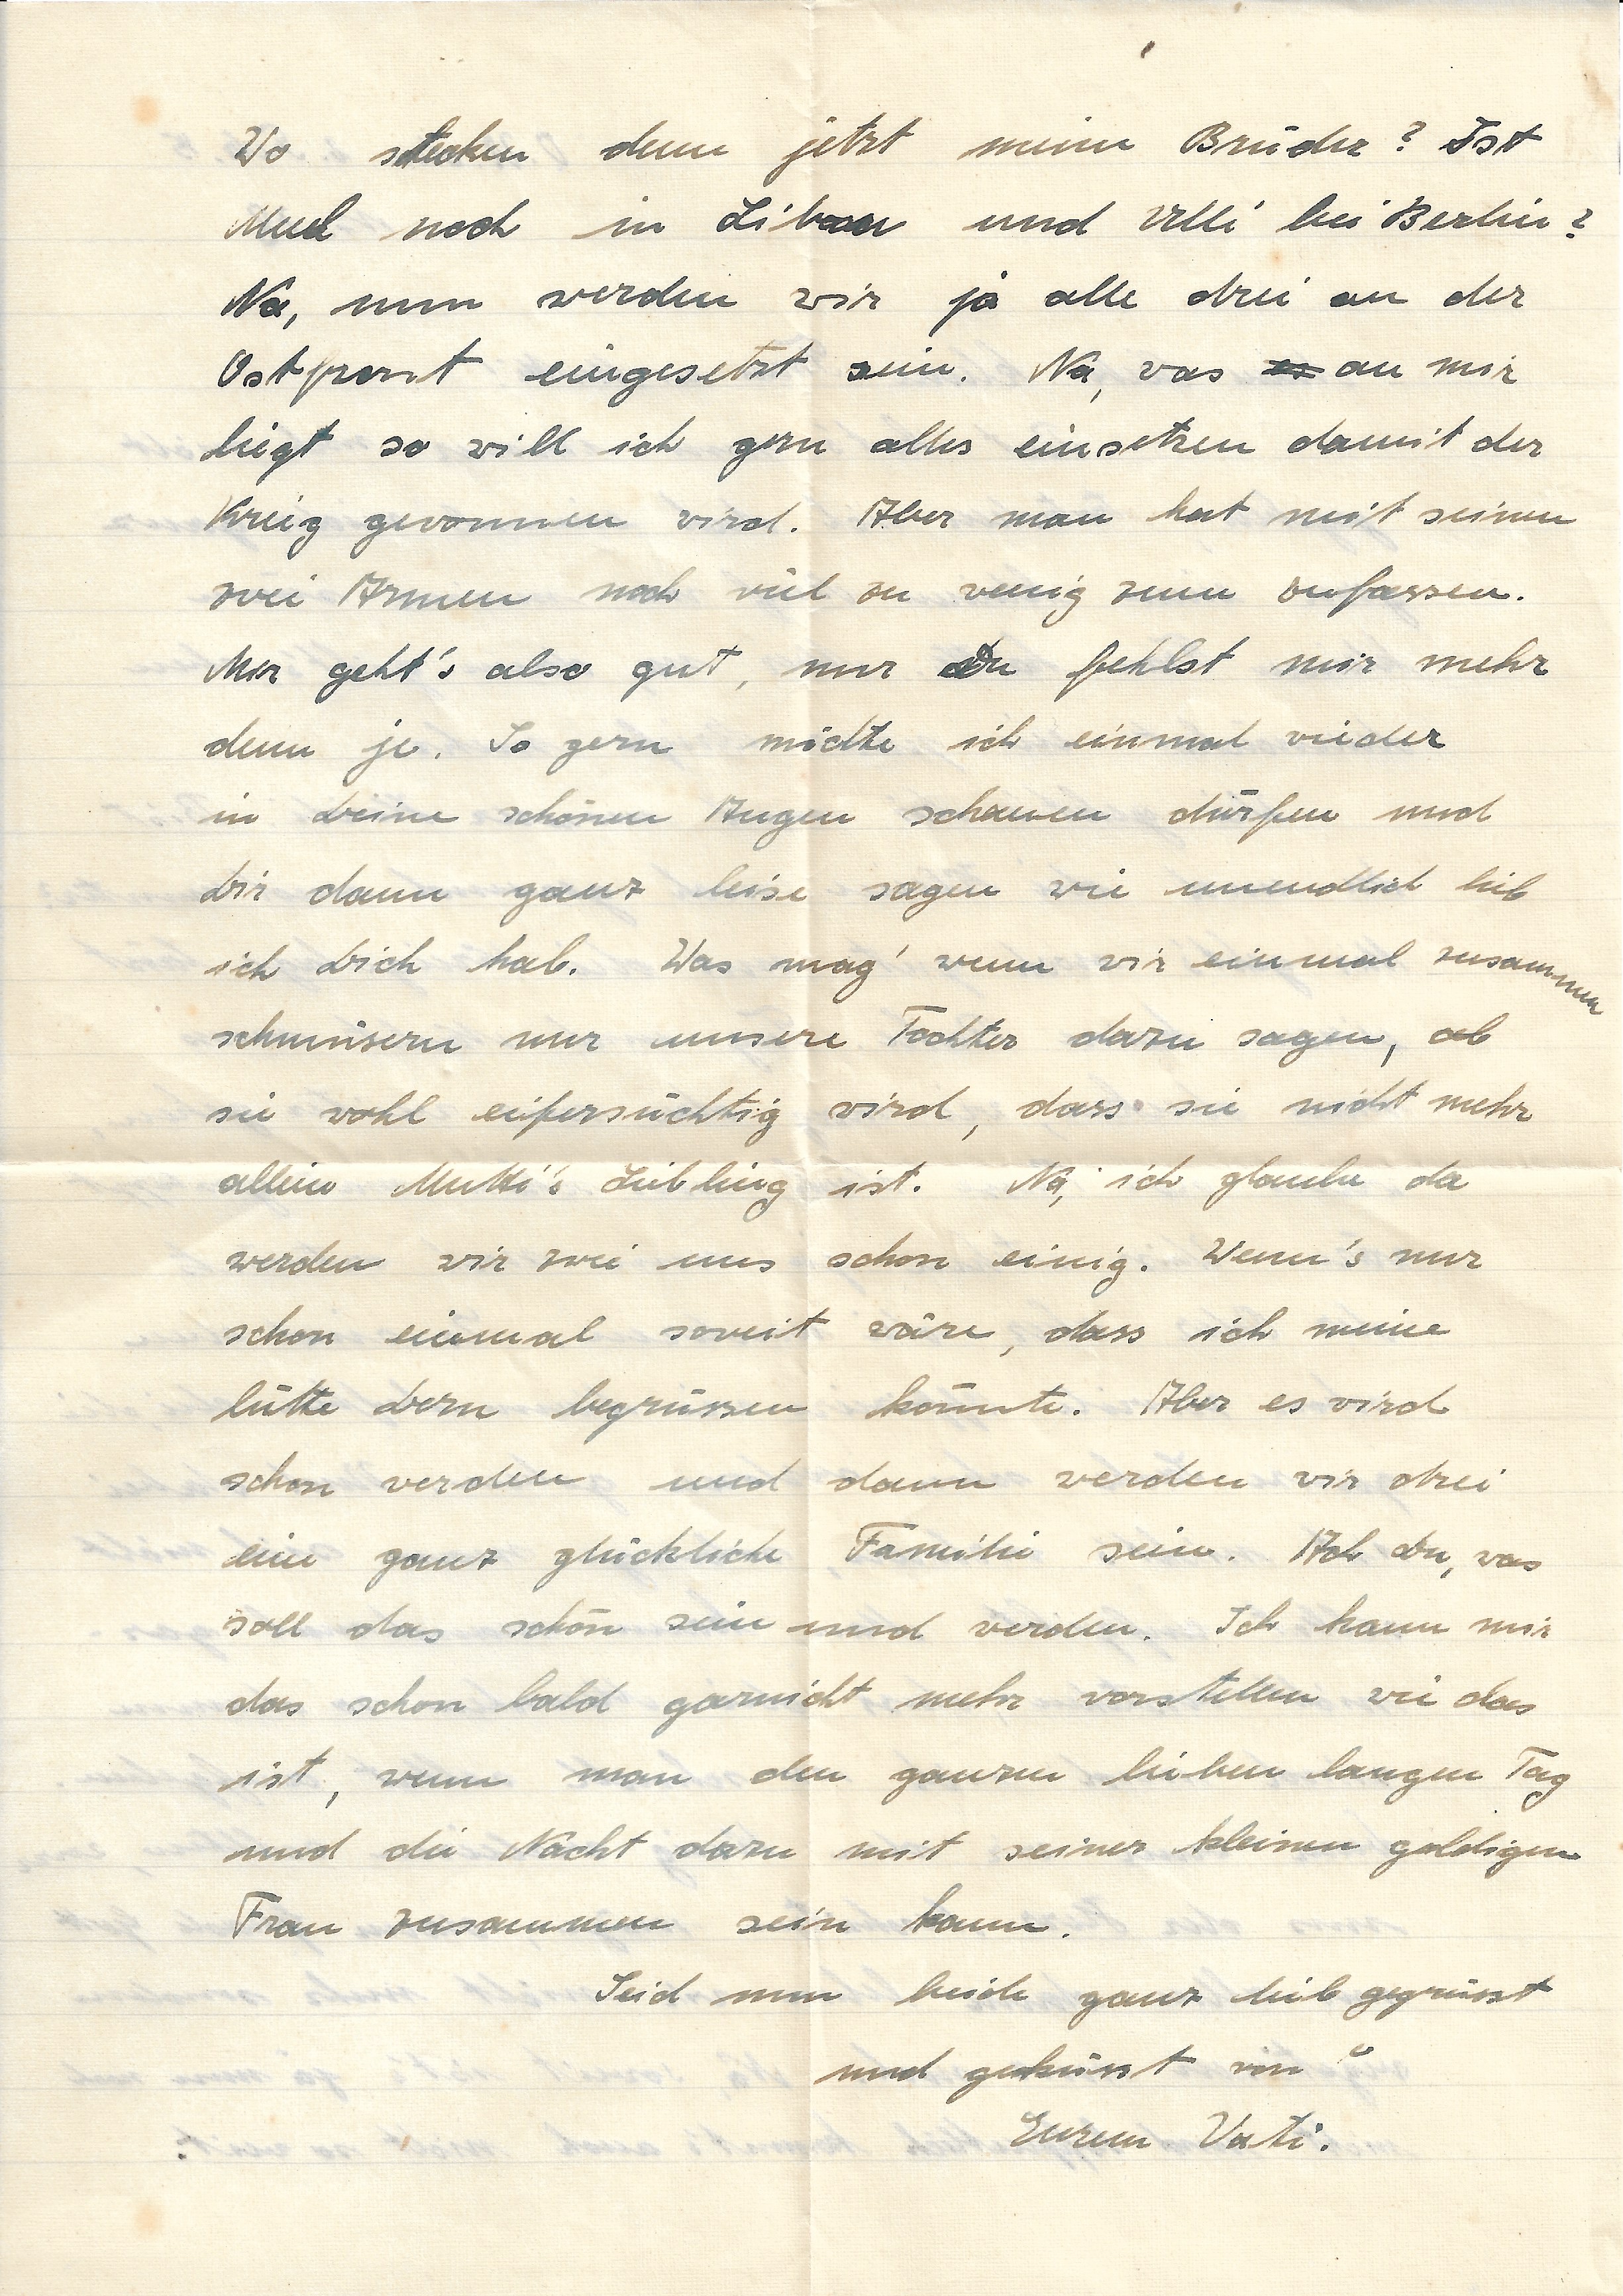 Wo stecken denn jetzt meine Brüder? Ist
noch in Libau und Ulli bei Berlin?
Na, nun werden wir ja alle drei an der
Ostfront eingesetzt sein. Na, was es an mir
liegt so will ich gern alles einsetzen damit der
Krieg gewonnen wird. Aber man hat mit seinen
zwei Armen noch viel zu wenig zum zufassen.
Mir geht's also gut, nur Du fehlst mir mehr
denn je. So gern möchte ich einmal wieder
in Deine schönen Augen schauen dürfen und
Dir dann ganz leise sagen wie unendlich lieb
ich Dich hab. Was mag' wenn wir einmal zusammen
schmusern nur unsere Tochter dazu sagen, ob
sie wohl eifersüchtig wird, dass sie nicht mehr
allein Mutti's Liebling ist. Na, ich glaube da
werden wir zwei uns schon einig. Wenn's nur
schon einmal soweit wäre, dass ich meine
lütte Dern begrüssen könnte. Aber es wird
schon werden und dann werden wir drei
eine ganz glückliche Familie sein. Ach Du, was
soll das schön sein und werden. Ich kann mir
das schon bald garnicht mehr vorstellen wie das
ist, wenn man den ganzen lieben langen Tag
und die Nacht dazu mit seiner kleinen goldigen
Frau zusammen sein kann.
Seid nun beide ganz lieb gegrüsst
und geküsst von
Eurem Vati.